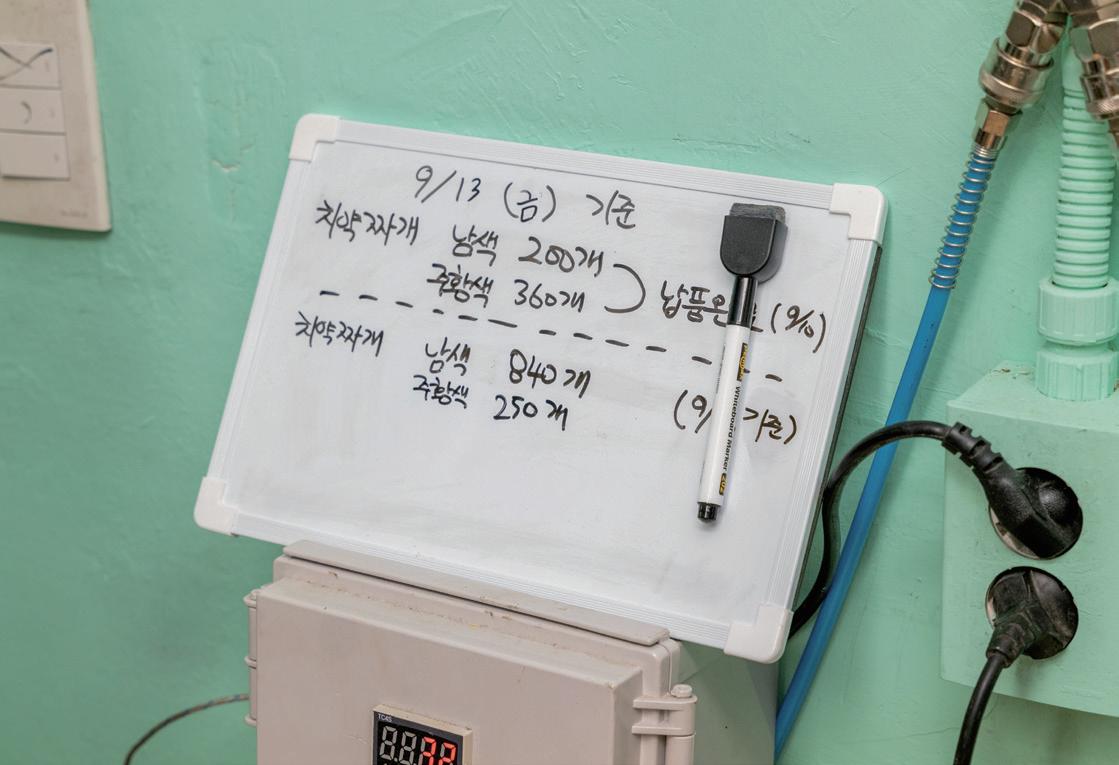 9/13 (금) 기준
치약짜개 남색 200개
주황색 360개
납품완 (9/10)
치약짜개 남색 840개
주황색 250개
(9/ 기준)
Whiteboard Marker
TC4S